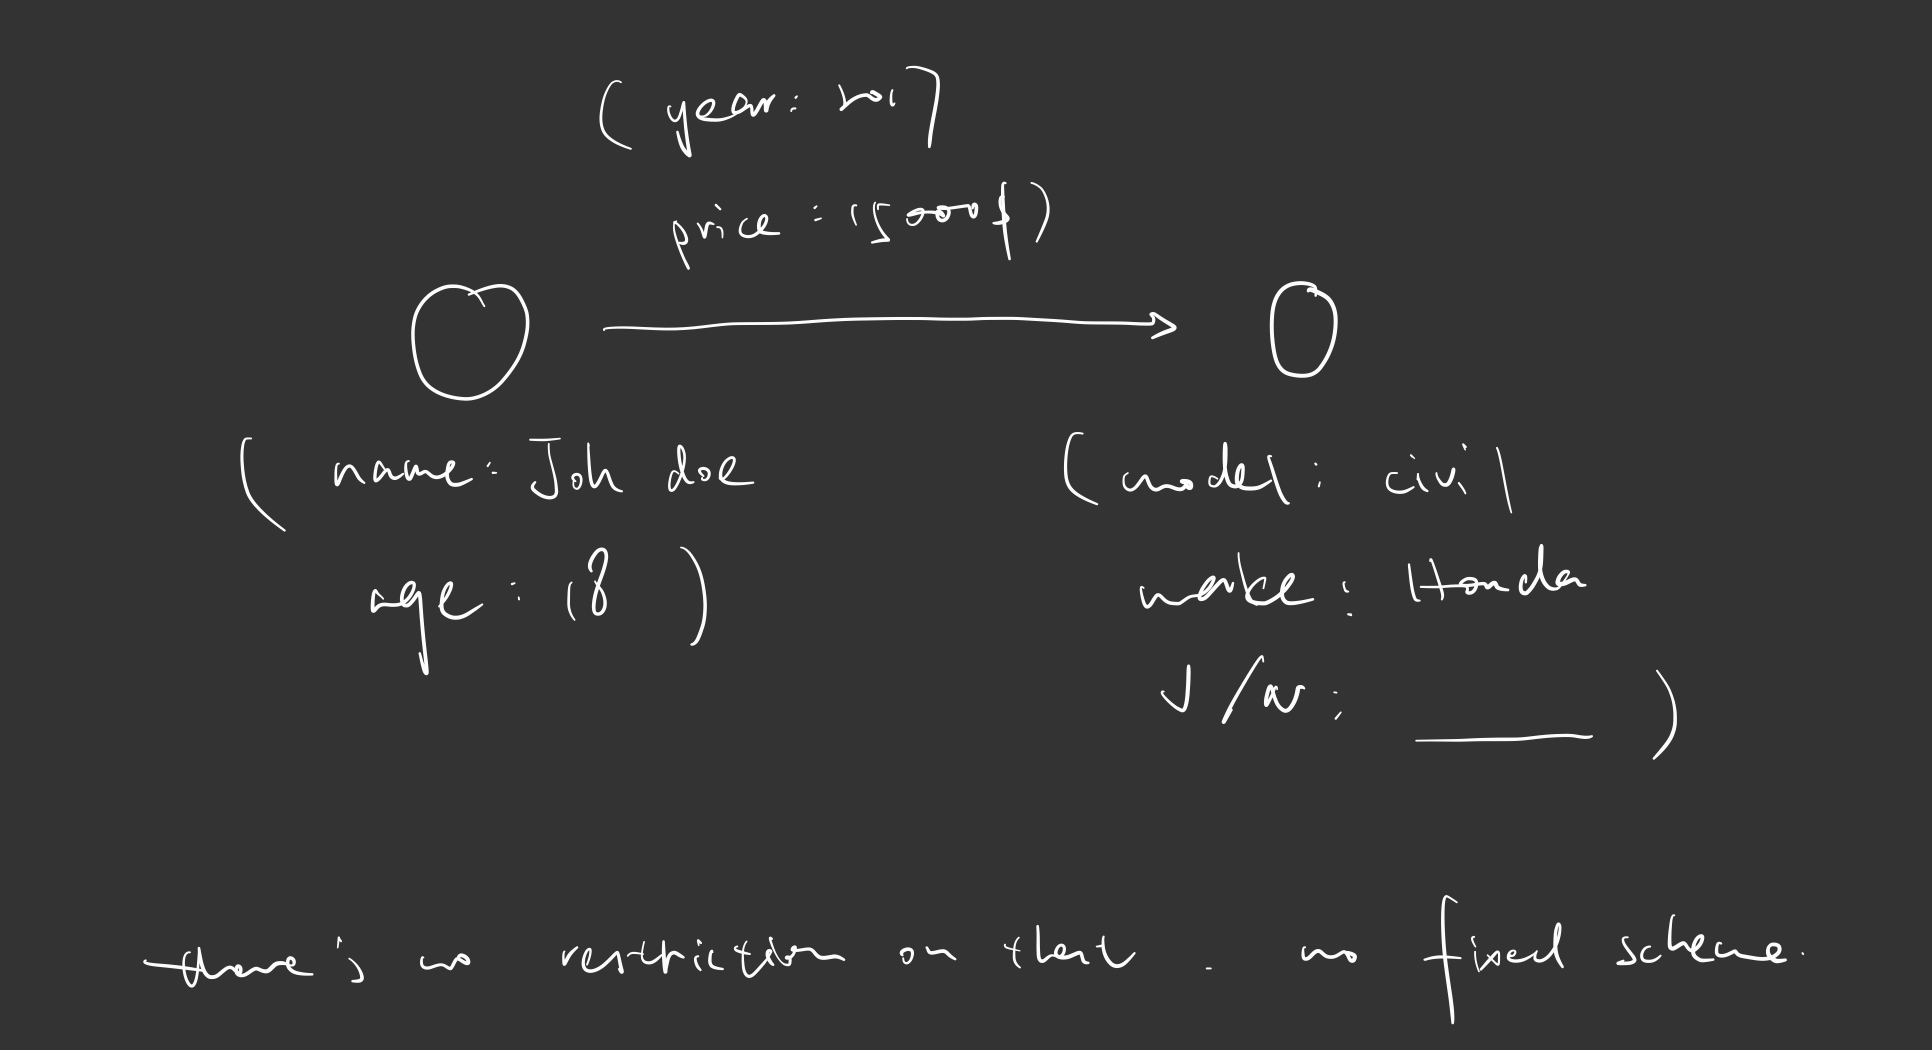 (year: 2017
price: 15000$)
(name: Joh doe
age: 18 )
(model: civil
make: Honda
V/N: ____ )
there's no restriction on that. no fixed scheme.